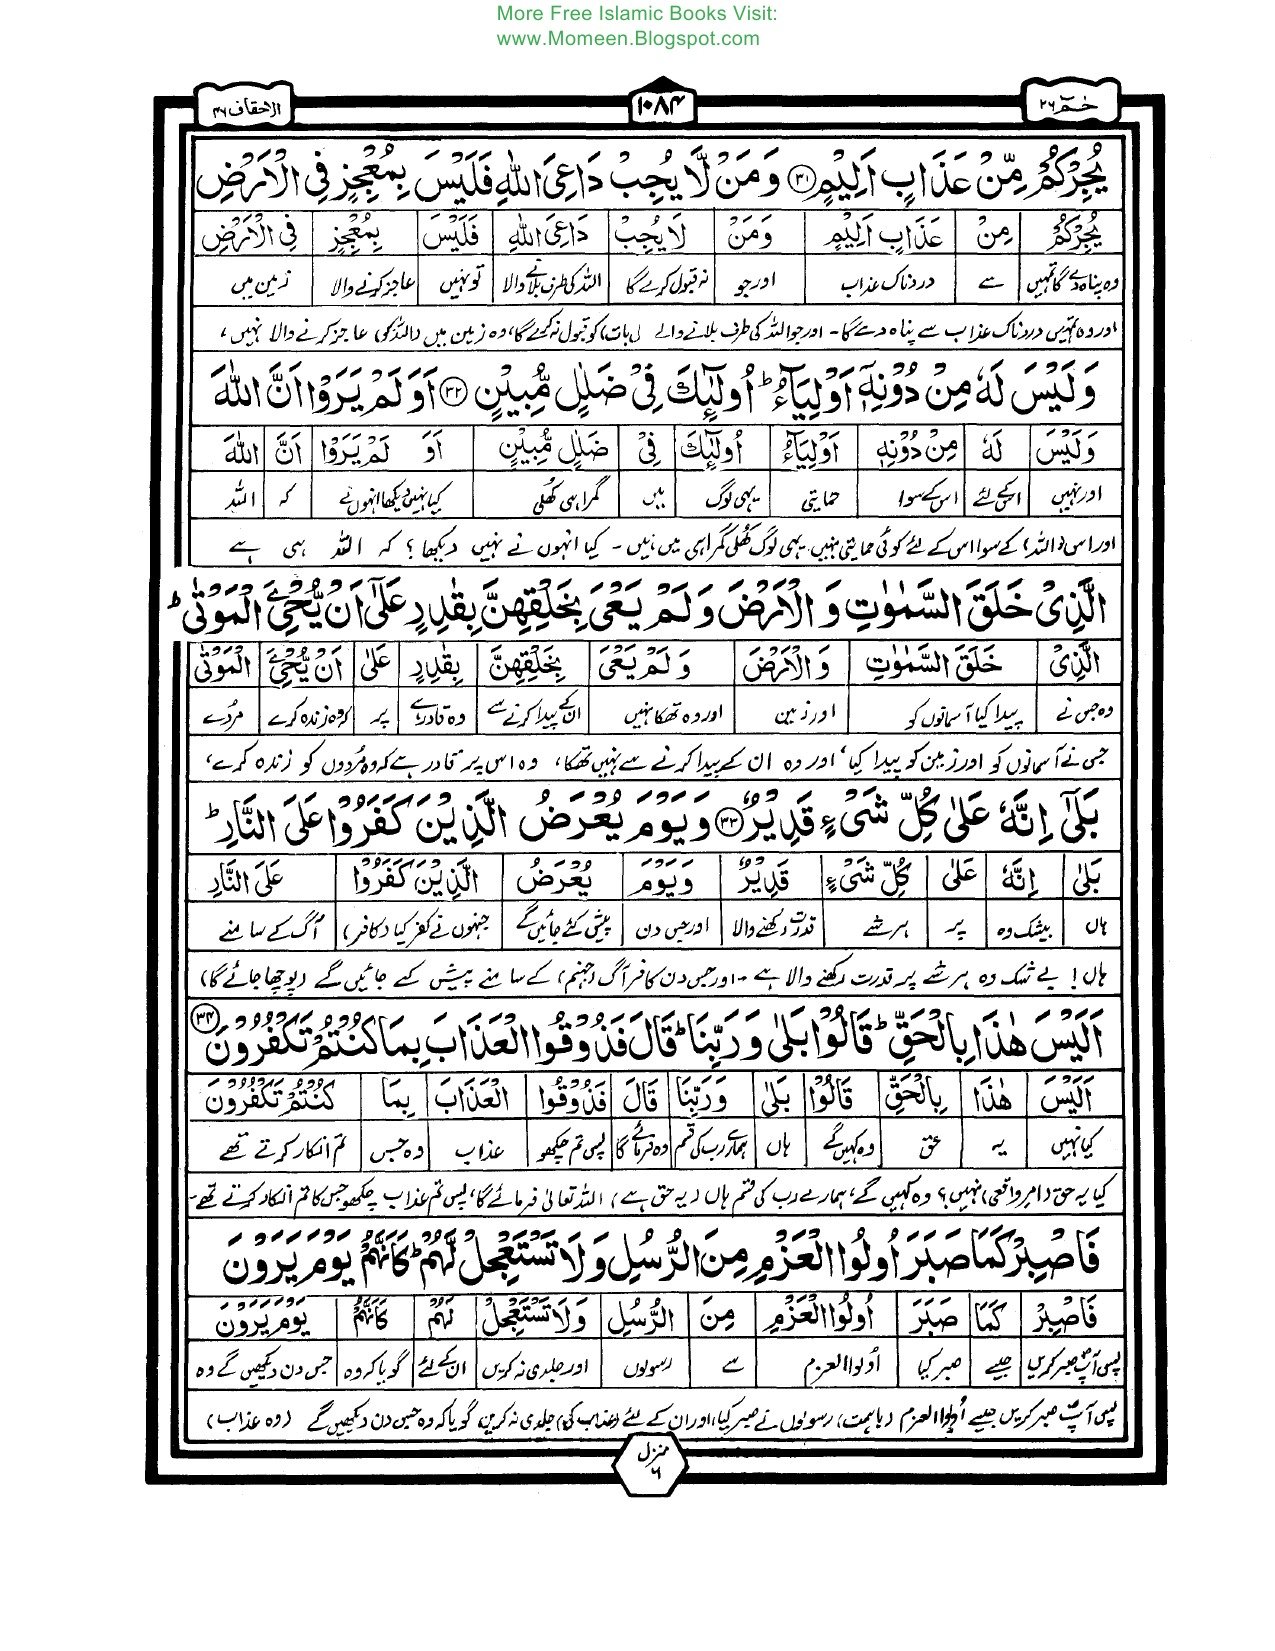 More Free Islamic Books Visit:
www.Momeen.Blogspot.com
حٰمٓ ۲۶ ۱۰۸۴ الاحقاف ۴۶
یُجِرْكُمْ مِّنْ عَذَابٍ اَلِیْمٍ ۳۱ وَمَنْ لَّا یُجِبْ دَاعِیَ اللّٰهِ فَلَیْسَ بِمُعْجِزٍ فِی الْاَرْضِ
یُجِرْكُمْ مِنْ عَذَابٍ اَلِیْمٍ وَمَنْ لَا یُجِبْ دَاعِیَ اللّٰهِ فَلَیْسَ بِمُعْجِزٍ فِی الْاَرْضِ
وہ پناہ دے گا تمہیں سے دردناک عذاب اور جو نہ قبول کرے گا اللہ کی طرف بلانے والا تو نہیں عاجز کرنے والا زمین میں
اور وہ تمہیں دردناک عذاب سے پناہ دے گا۔ اور جو اللہ کی طرف بلانے والے کی بات) کو قبول نہ کرے گا، وہ زمین میں (اللہ کو) عاجز کرنے والا نہیں،
وَلَیْسَ لَهٗ مِنْ دُوْنِهٖۤ اَوْلِیَآءُ ؕ اُولٰٓئِكَ فِیْ ضَلٰلٍ مُّبِیْنٍ ۳۲ اَوَلَمْ یَرَوْا اَنَّ اللّٰهَ
وَلَیْسَ لَهٗ مِنْ دُوْنِهٖۤ اَوْلِیَآءُ اُولٰٓئِكَ فِیْ ضَلٰلٍ مُّبِیْنٍ اَوَ لَمْ یَرَوْا اَنَّ اللّٰهَ
اور نہیں اس کے لئے اس کے سوا حمایتی یہی لوگ میں گمراہی کھلی کیا نہیں دیکھا انہوں نے کہ اللہ
اور اس (اللہ) کے سوا اس کے لئے کوئی حمایتی نہیں۔ یہی لوگ کھلی گمراہی میں ہیں۔ کیا انہوں نے نہیں دیکھا؟ کہ اللہ ہی ہے
الَّذِیْ خَلَقَ السَّمٰوٰتِ وَ الْاَرْضَ وَ لَمْ یَعْیَ بِخَلْقِهِنَّ بِقٰدِرٍ عَلٰۤی اَنْ یُّحْیِ َۧ الْمَوْتٰی ؕ
الَّذِیْ خَلَقَ السَّمٰوٰتِ وَ الْاَرْضَ وَ لَمْ یَعْیَ بِخَلْقِهِنَّ بِقٰدِرٍ عَلٰی اَنْ یُّحْیِ َۧ الْمَوْتٰی
وہ جس نے پیدا کیا آسمانوں کو اور زمین اور وہ تھکا نہیں ان کے پیدا کرنے سے وہ قادر ہے پر کہ وہ زندہ کرے مردے
جس نے آسمانوں کو اور زمین کو پیدا کیا، اور وہ ان کے پیدا کرنے سے نہیں تھکا، وہ اس پر قادر ہے کہ وہ مُردوں کو زندہ کرے،
بَلٰۤی اِنَّهٗ عَلٰی كُلِّ شَیْءٍ قَدِیْرٌ ۳۳ وَ یَوْمَ یُعْرَضُ الَّذِیْنَ كَفَرُوْا عَلَی النَّارِ ؕ
بَلٰی اِنَّهٗ عَلٰی كُلِّ شَیْءٍ قَدِیْرٌ وَ یَوْمَ یُعْرَضُ الَّذِیْنَ كَفَرُوْا عَلَی النَّارِ
ہاں بیشک وہ پر ہر شے قدرت رکھنے والا اور جس دن پیش کئے جائیں گے جنہوں نے کفر کیا (کافر) آگ کے سامنے
ہاں! بے شک وہ ہر شے پر قدرت رکھنے والا ہے۔ اور جس دن کافر آگ (جہنم) کے سامنے پیش کیے جائیں گے (پوچھا جائے گا)
اَلَیْسَ هٰذَا بِالْحَقِّ ؕ قَالُوْا بَلٰی وَ رَبِّنَا ؕ قَالَ فَذُوْقُوا الْعَذَابَ بِمَا كُنْتُمْ تَكْفُرُوْنَ ۳۴
اَلَیْسَ هٰذَا بِالْحَقِّ قَالُوْا بَلٰی وَرَبِّنَا قَالَ فَذُوْقُوا الْعَذَابَ بِمَا كُنْتُمْ تَكْفُرُوْنَ
کیا نہیں یہ حق وہ کہیں گے ہاں ہمارے رب کی قسم وہ فرمائے گا پس تم چکھو عذاب وہ جس تم انکار کرتے تھے
کیا یہ حق (امر واقعی) نہیں؟ وہ کہیں گے، ہمارے رب کی قسم ہاں (یہ حق ہے) اللہ تعالیٰ فرمائے گا، پس تم عذاب چکھو جس کا تم انکار کرتے تھے۔
فَاصْبِرْ كَمَا صَبَرَ اُولُوا الْعَزْمِ مِنَ الرُّسُلِ وَ لَا تَسْتَعْجِلْ لَّهُمْ ؕ كَاَنَّهُمْ یَوْمَ یَرَوْنَ
فَاصْبِرْ كَمَا صَبَرَ اُولُوا الْعَزْمِ مِنَ الرُّسُلِ وَلَا تَسْتَعْجِلْ لَهُمْ كَاَنَّهُمْ یَوْمَ یَرَوْنَ
پس آپؐ صبر کریں جیسے صبر کیا اُولوالعزم سے رسولوں اور جلدی نہ کریں ان کے لئے گویا کہ وہ جس دن دیکھیں گے وہ
پس آپؐ صبر کریں جیسے اُولوالعزم (باہمت) رسولوں نے صبر کیا، اور ان کے لئے (عذاب کی) جلدی نہ کریں، گویا کہ وہ جس دن دیکھیں گے (وہ عذاب)
منزل ۶